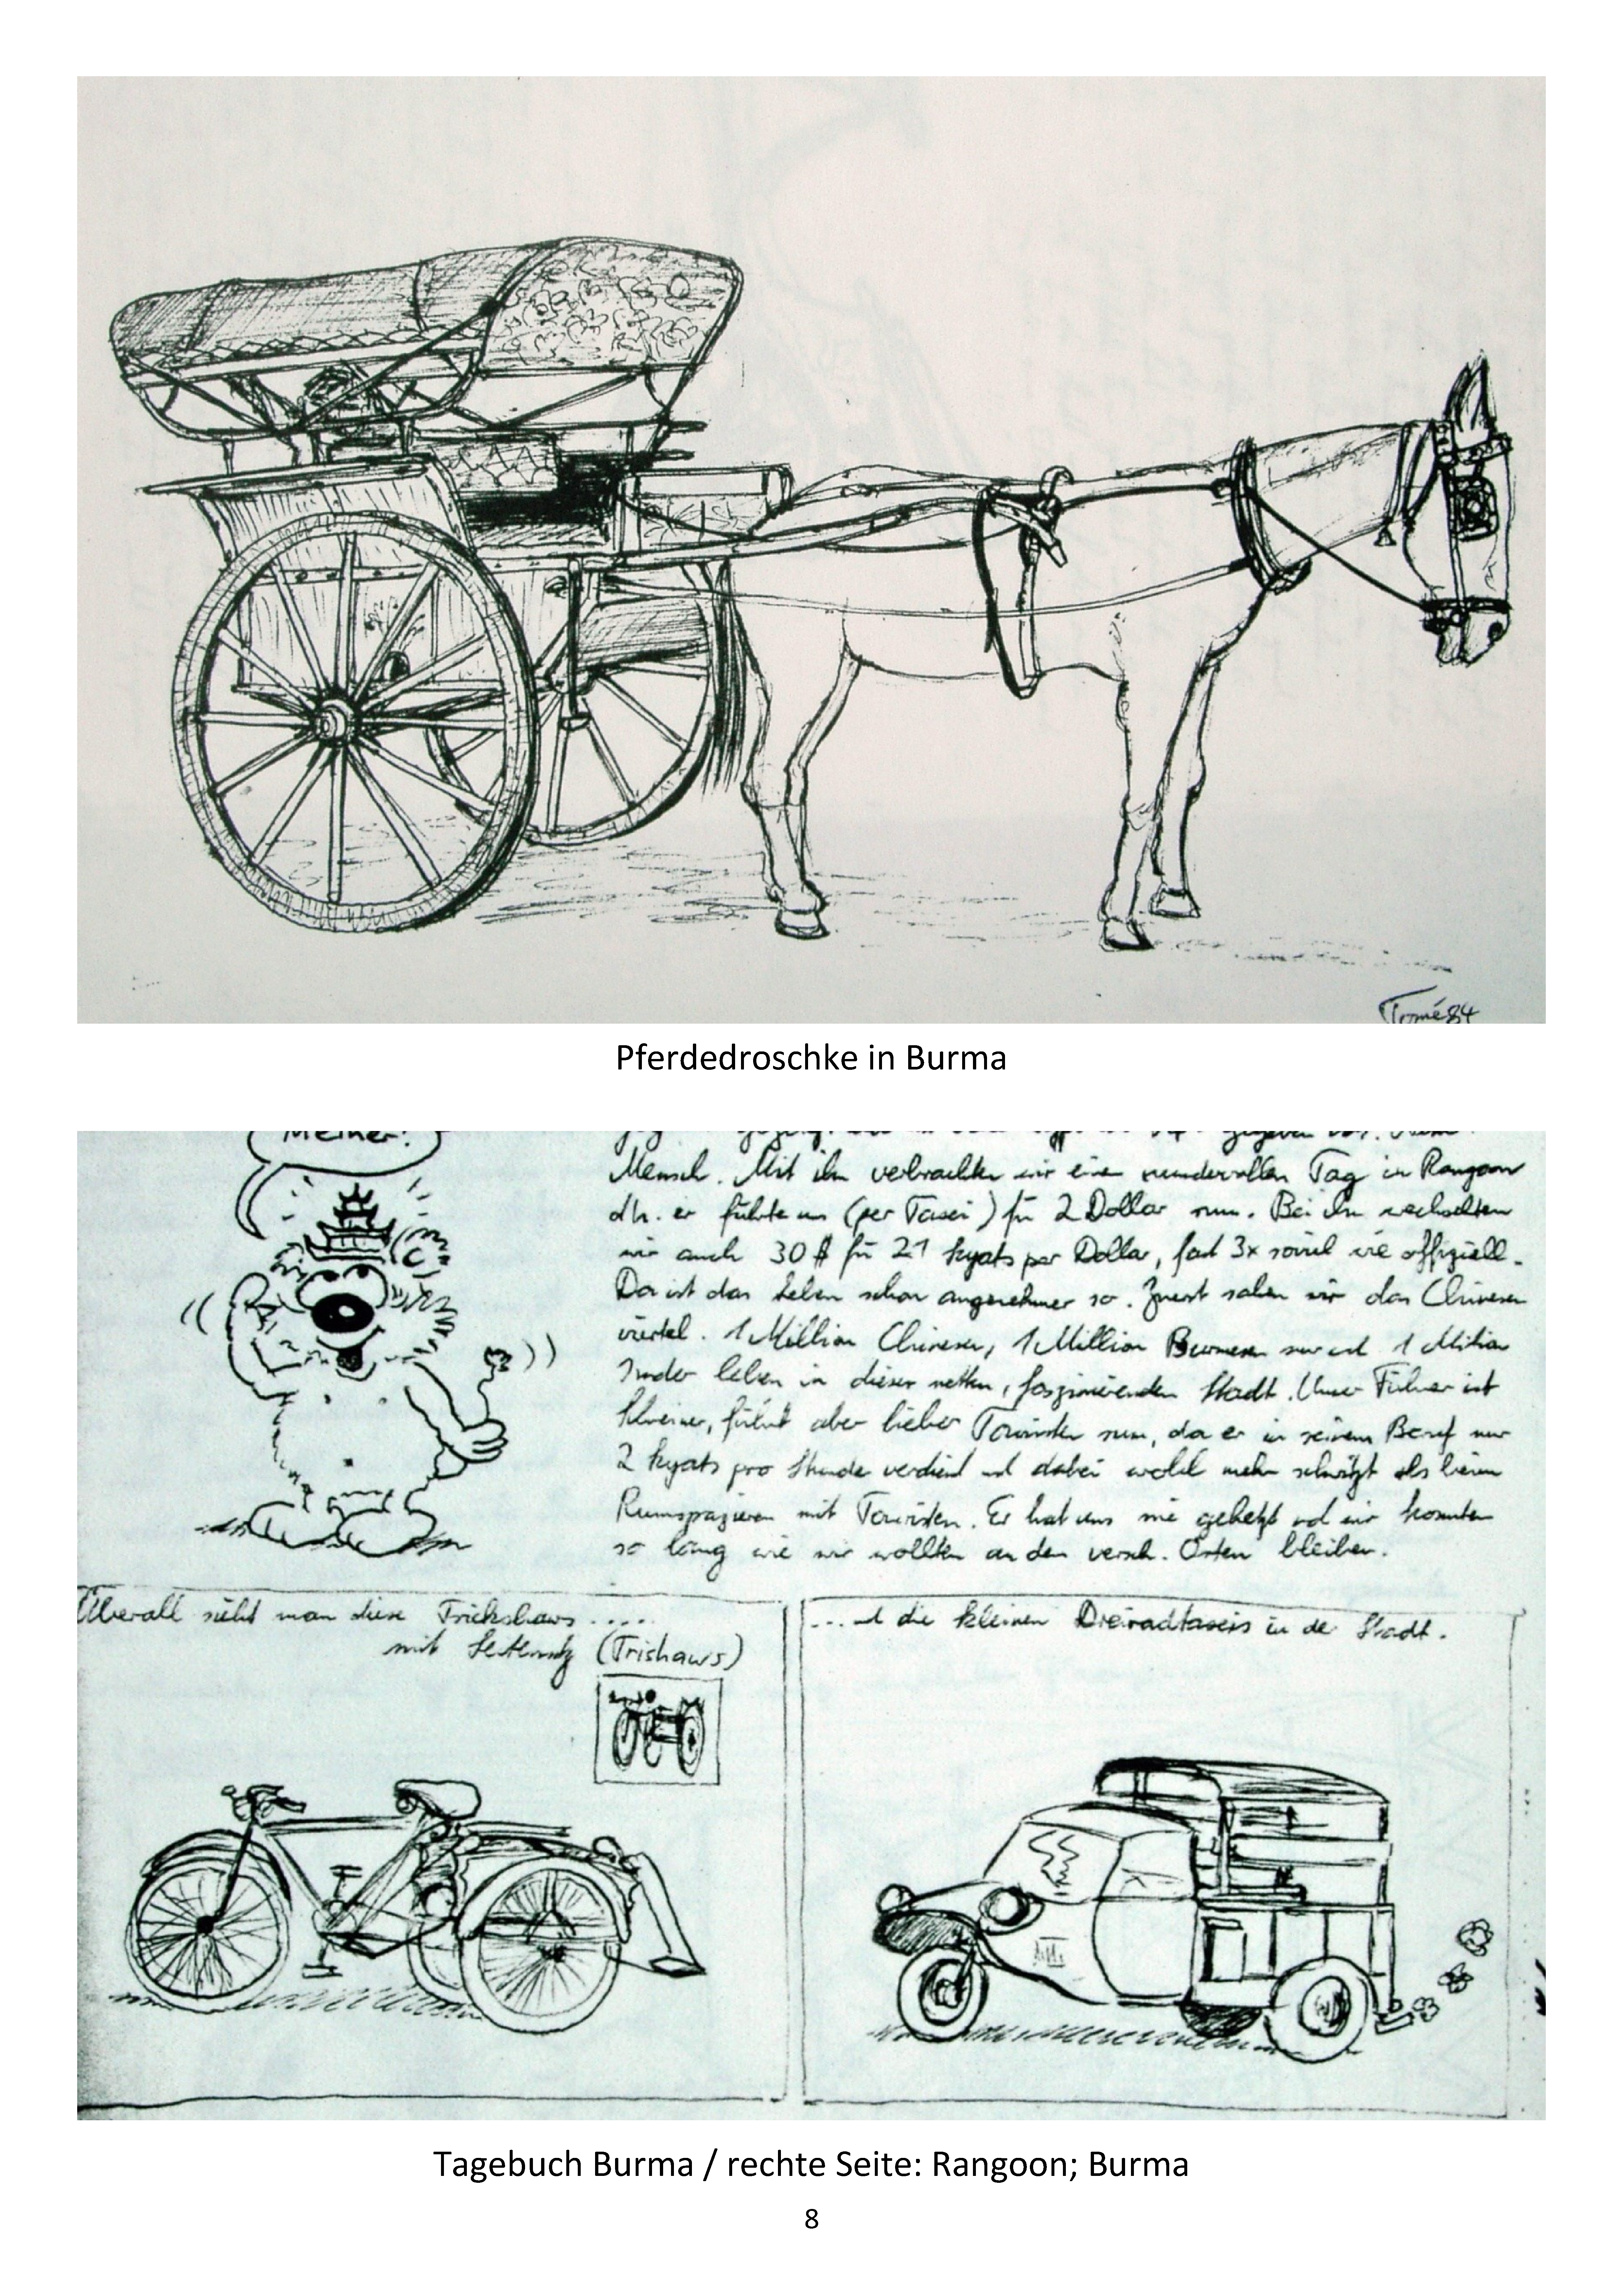 Tomé 84
Pferdedroschke in Burma
Meiner!
Mensch. Mit ihm verbrachten wir einen wundervollen Tag in Rangoon
d.h. er führte uns (per Taxi) für 2 Dollar rum. Bei ihm wechselten
wir auch 30 $ für 21 kyats per Dollar, fast 3x soviel wie offiziell.
Da ist das Leben schon angenehmer so. Zuerst sahen wir das Chinesen
viertel. 1 Million Chinesen, 1 Million Burmesen und 1 Million
Inder leben in dieser netten, faszinierenden Stadt. Unser Führer ist
führt aber lieber Touristen rum, da er in seinem Beruf nur
2 kyats pro Stunde verdient und dabei wohl mehr schwitzt als beim
Rumspazieren mit Touristen. Er hat uns nie gehetzt und wir konnten
so lang wie wir wollten an den versch. Orten bleiben.
Überall sieht man diese Trickshaws ....
mit (Trishaws)
...und die kleinen Dreiradtaxis in der Stadt.
Tagebuch Burma / rechte Seite: Rangoon; Burma
8